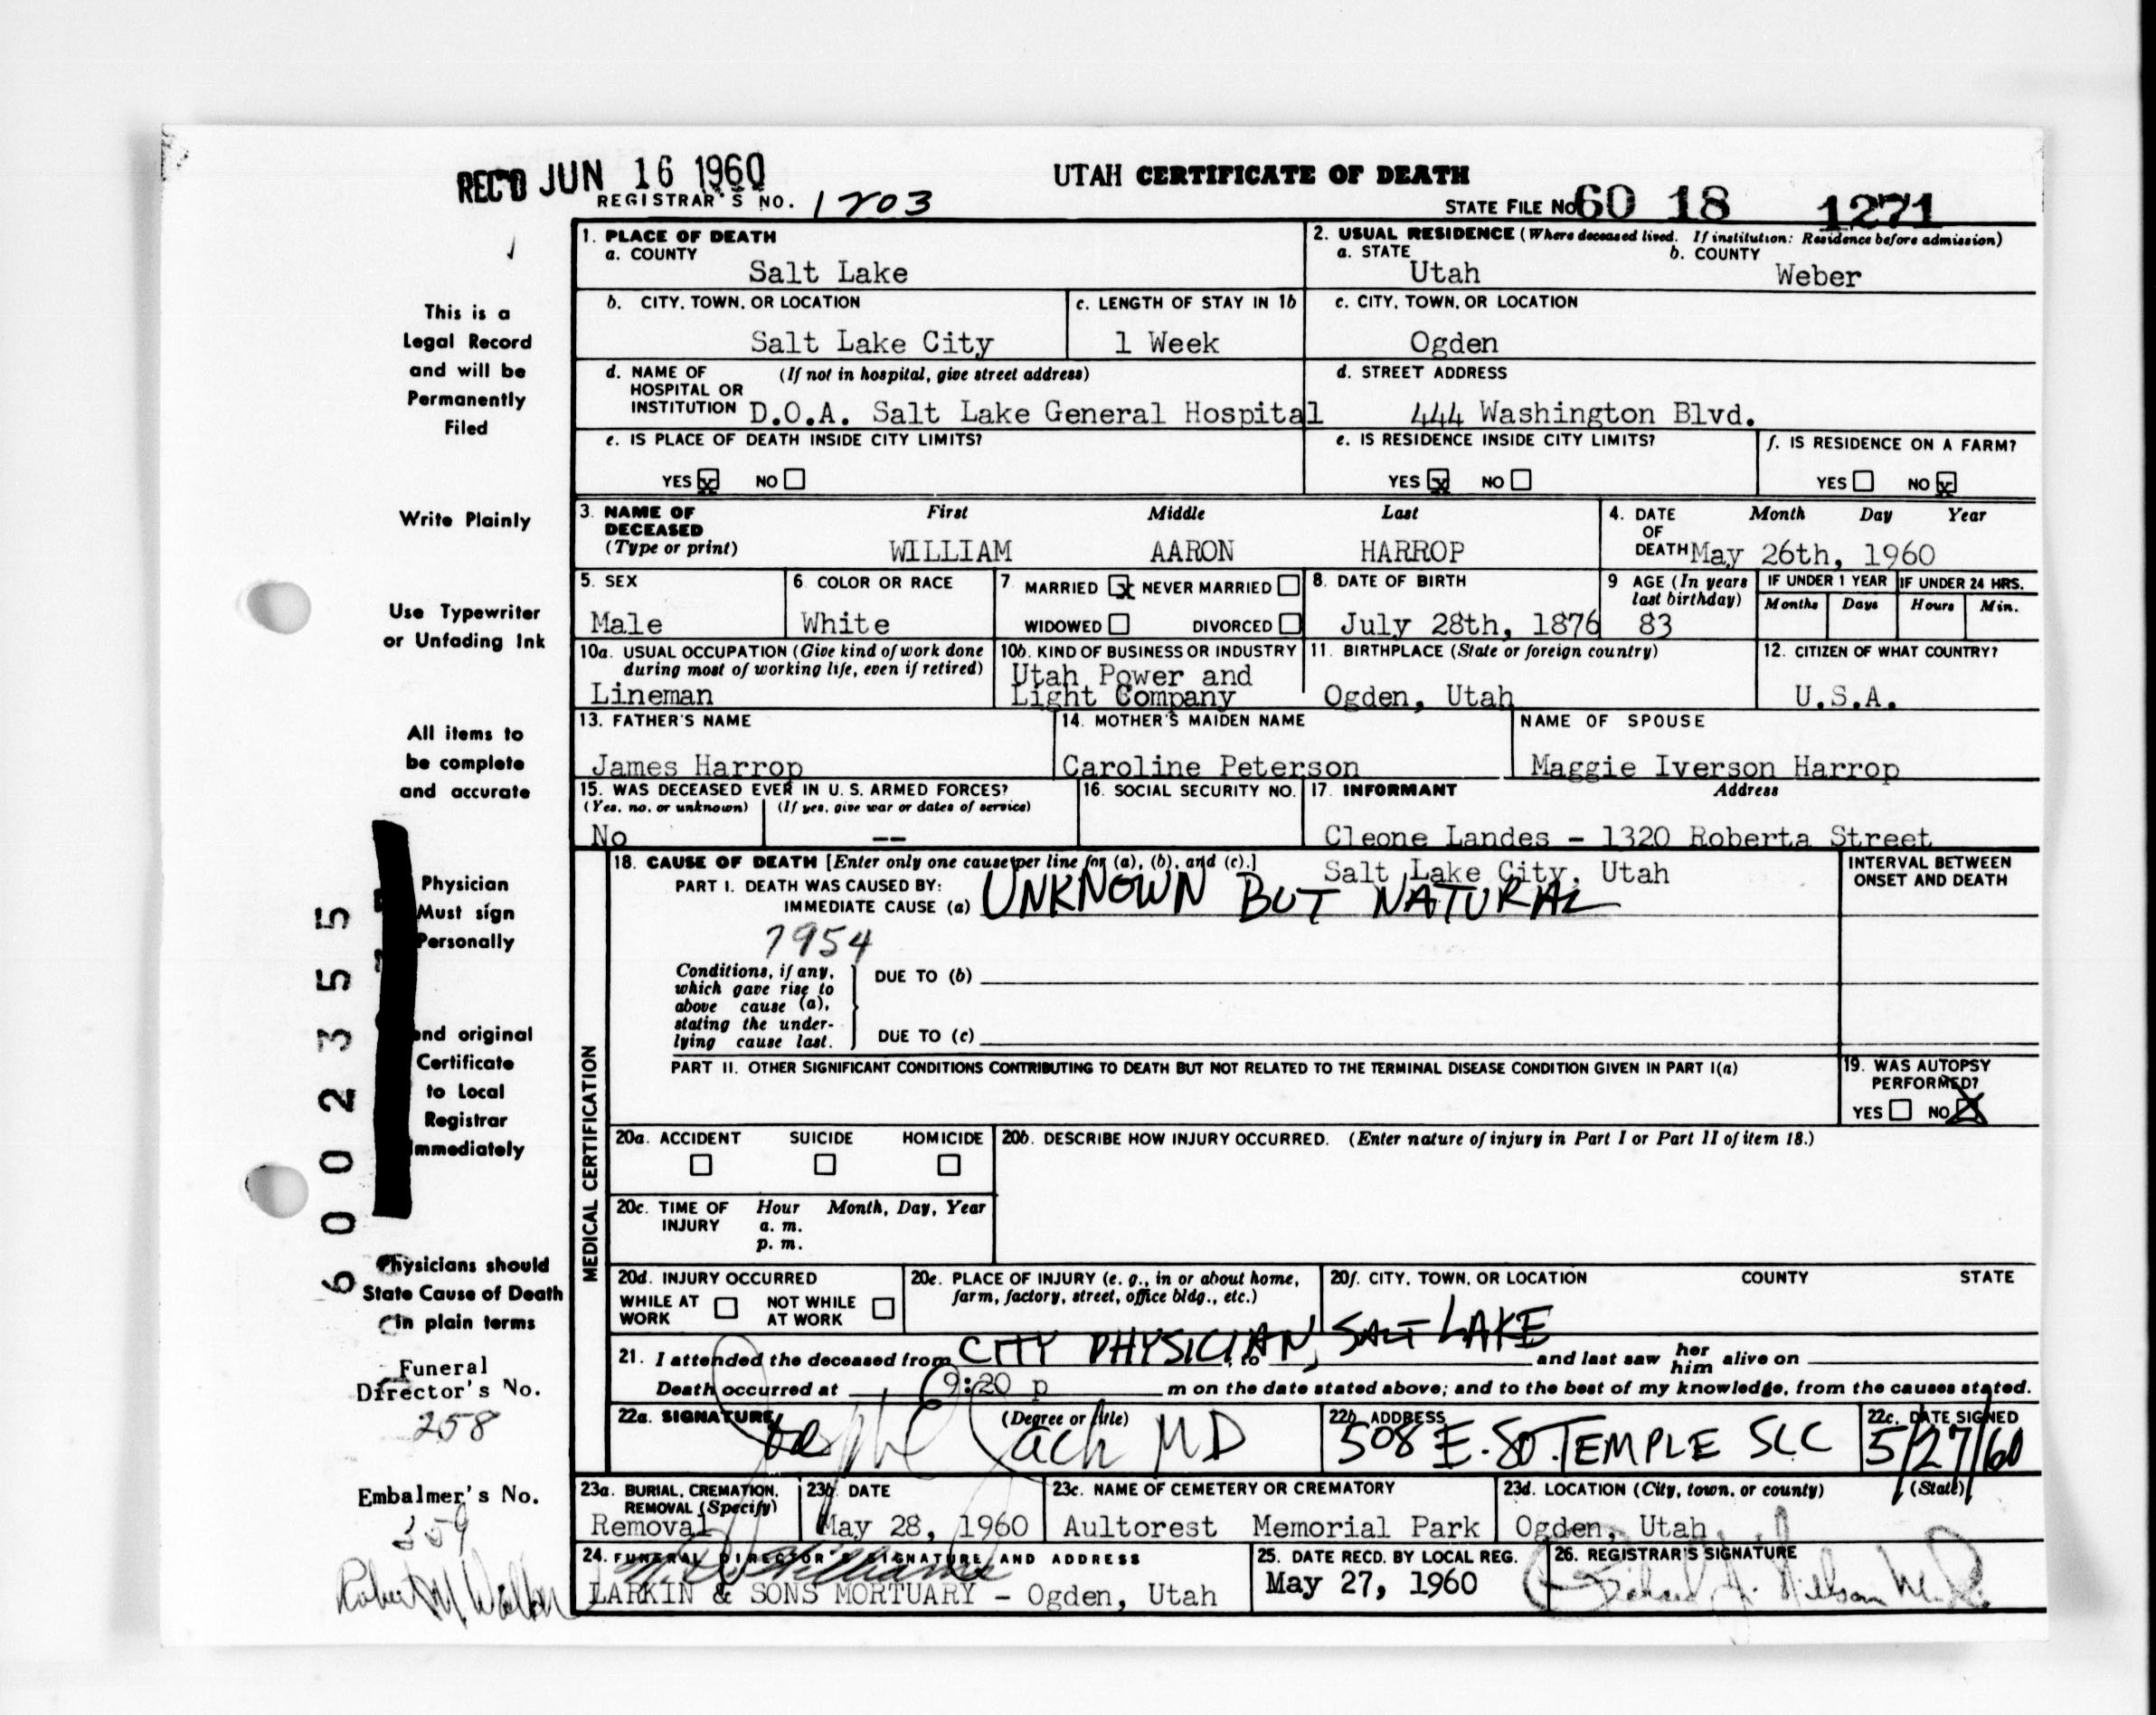 REC'D JUN 16 1960
UTAH CERTIFICATE OF DEATH
REGISTRAR'S NO. 1203
STATE FILE No 60 18 1271
1. PLACE OF DEATH
a. COUNTY
Salt Lake
2. USUAL RESIDENCE (Where deceased lived. If institution: Residence before admission)
a. STATE b. COUNTY
Utah Weber
b. CITY, TOWN, OR LOCATION
Salt Lake City
c. LENGTH OF STAY IN 1b
1 Week
c. CITY, TOWN, OR LOCATION
Ogden
d. NAME OF (If not in hospital, give street address)
HOSPITAL OR
INSTITUTION D.O.A. Salt Lake General Hospital
d. STREET ADDRESS
444 Washington Blvd.
e. IS PLACE OF DEATH INSIDE CITY LIMITS?
YES x NO
e. IS RESIDENCE INSIDE CITY LIMITS?
YES x NO
f. IS RESIDENCE ON A FARM?
YES NO x
3. NAME OF DECEASED (Type or print)
First Middle Last
WILLIAM AARON HARROP
4. DATE OF DEATH
Month Day Year
May 26th, 1960
5. SEX
Male
6. COLOR OR RACE
White
7 MARRIED x NEVER MARRIED
WIDOWED DIVORCED
8. DATE OF BIRTH
July 28th, 1876
9 AGE (In years last birthday)
83
IF UNDER 1 YEAR IF UNDER 24 HRS.
Months Days Hours Min.
10a. USUAL OCCUPATION (Give kind of work done
during most of working life, even if retired)
Lineman
10b. KIND OF BUSINESS OR INDUSTRY
Utah Power and
Light Company
11. BIRTHPLACE (State or foreign country)
Ogden, Utah
12. CITIZEN OF WHAT COUNTRY?
U.S.A.
13. FATHER'S NAME
James Harrop
14. MOTHER'S MAIDEN NAME
Caroline Peterson
NAME OF SPOUSE
Maggie Iverson Harrop
15. WAS DECEASED EVER IN U. S. ARMED FORCES?
(Yes, no, or unknown) (If yes, give war or dates of service)
No --
16. SOCIAL SECURITY NO.
17. INFORMANT Address
Cleone Landes - 1320 Roberta Street
Salt Lake City, Utah
18. CAUSE OF DEATH [Enter only one cause per line for (a), (b), and (c).]
PART I. DEATH WAS CAUSED BY:
IMMEDIATE CAUSE (a) UNKNOWN BUT NATURAL
INTERVAL BETWEEN
ONSET AND DEATH
7954
Conditions, if any,
which gave rise to
above cause (a),
stating the under-
lying cause last.
DUE TO (b)
DUE TO (c)
PART II. OTHER SIGNIFICANT CONDITIONS CONTRIBUTING TO DEATH BUT NOT RELATED TO THE TERMINAL DISEASE CONDITION GIVEN IN PART I(a)
19. WAS AUTOPSY
PERFORMED?
YES NO X
MEDICAL CERTIFICATION
20a. ACCIDENT SUICIDE HOMICIDE
20b. DESCRIBE HOW INJURY OCCURRED. (Enter nature of injury in Part I or Part II of item 18.)
20c. TIME OF INJURY
Hour Month, Day, Year
a. m.
p. m.
20d. INJURY OCCURRED
WHILE AT WORK NOT WHILE AT WORK
20e. PLACE OF INJURY (e. g., in or about home,
farm, factory, street, office bldg., etc.)
20f. CITY, TOWN, OR LOCATION COUNTY STATE
21. I attended the deceased from CITY PHYSICIAN, to SALT LAKE and last saw her him alive on
Death occurred at 9:20 p m on the date stated above; and to the best of my knowledge, from the causes stated.
22a. SIGNATURE (Degree or title)
Joseph MD
22b. ADDRESS
508 E. SO. TEMPLE SLC
22c. DATE SIGNED
5/27/60
23a. BURIAL, CREMATION,
REMOVAL (Specify)
Removal
23b. DATE
May 28, 1960
23c. NAME OF CEMETERY OR CREMATORY
Aultorest Memorial Park
23d. LOCATION (City, town, or county) (State)
Ogden, Utah
24. FUNERAL DIRECTOR'S SIGNATURE AND ADDRESS
Williams
LARKIN & SONS MORTUARY - Ogden, Utah
25. DATE RECD. BY LOCAL REG.
May 27, 1960
26. REGISTRAR'S SIGNATURE
This is a
Legal Record
and will be
Permanently
Filed
Write Plainly
Use Typewriter
or Unfading Ink
All items to
be complete
and accurate
Physician
Must sign
Personally
end original
Certificate
to Local
Registrar
mmediately
Physicians should
State Cause of Death
in plain terms
Funeral
Director's No.
258
Embalmer's No.
359
6002355